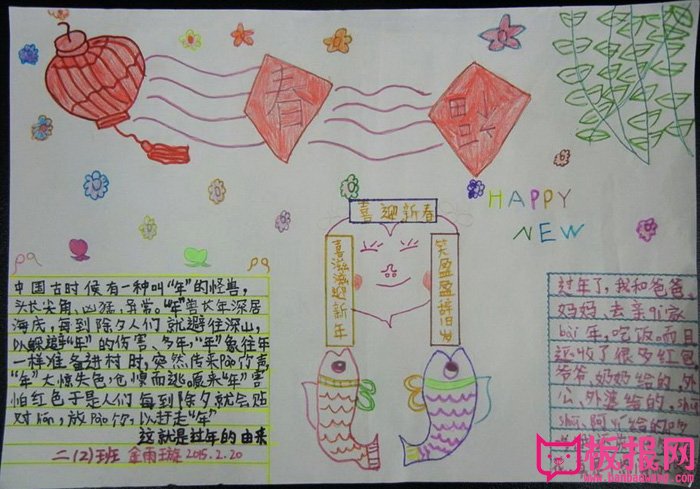 春
福
HAPPY
NEW
喜迎新春
喜滋滋迎新年
笑盈盈辞旧岁
中国古时候有一种叫“年”的怪兽，
头长尖角、凶猛异常。“年”兽长年深居
海底，每到除夕人们就避往深山，
以躲避“年”的伤害。多年，“年”象往年
一样准备进村时，突然传来pào竹声
“年”大惊失色，仓惶而逃。原来“年”害
怕红色于是人们每到除夕就会贴
对lián，放pào竹，以赶走“年”
这就是过年的由来
二（2）班 金雨璇 2015.2.20
过年了，我和爸爸、
妈妈、去亲
bài年，吃饭。而且
还收了很多红包
爷爷、奶奶给的、
公、外婆给的、
阿
板报网
www.banbaowang.com